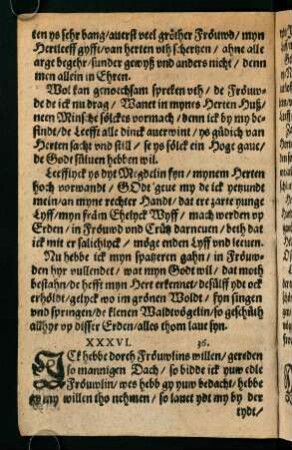 ten ys sehr bang/ auerst veel gröther Fröuwd/ myn
Hertleeff gyfft/ van herten vth schertzen/ ahne alle
arge begehr/ sunder gewyß vnd anders nicht/ denn
men allein in Ehren.
Wol kan genoechsam spreken vth/ de Fröuw-
de de ick nu drag/ Wanet in mynes Herten Huß/
neen Minsche sölckes vormach/ denn ick by my be-
findt/ de Leefft alle dinck auerwint/ ys güdich van
Herten sacht vnd still/ se ys sölck ein Hoge gaue/
de Godt süluen hebben wil.
Leefflyck ys dyt Megdelin fyn/ mynem Herten
hoch vorwandt/ GOdt geue my de ick yetzundt
mein/ an myne rechter Handt/ dat ere zarte yunge
Lyff/ myn främ Ehelyck Wyff/ mach werden vp
Erden/ in Fröuwd vnd Crütz darneuen/ beth dat
ick mit er salichlyck/ möge enden Lyff vnd leeuen.
Nu hebbe ick myn spatzeren gahn/ in Fröuw-
den hyr vullendet/ wat myn Godt wil/ dat moth
bestahn/ de hefft myn Hert erkennet/ desülff ydt ock
erhöldt/ gelyck wo im grönen Woldt/ syn singen
vnd springen/ de klenen Waldtvögelin/ so geschüth
allhyr vp disser Erden/ alles thom laue syn.
XXXVI. 36.
ICk hebbe dorch Fröuwlins willen/ gereden
so mannigen Dach/ so bidde ick yuw edle
Fröuwlin/ wes hebb gy yuw bedacht/ hebbe
gy my willen tho nehmen/ so lauet ydt my by der
tydt/